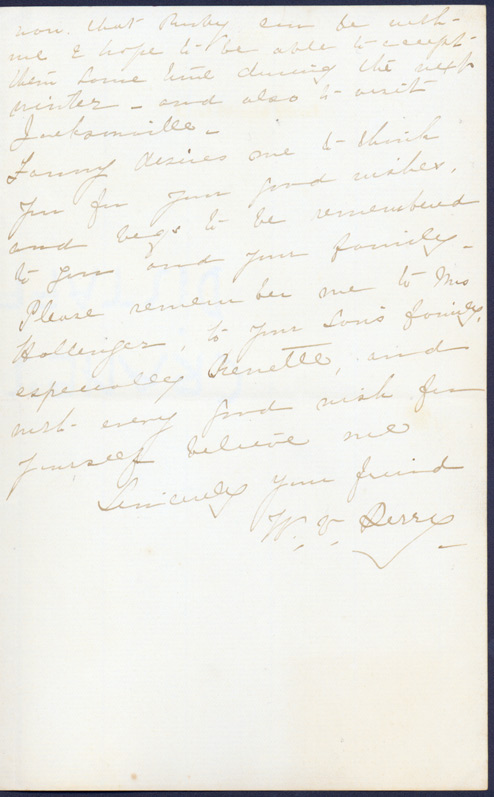 now. that Ruby can be with
me I hope to be able to accept
them some time during the next
winter – and also to visit
Jacksonville –
Fanny desires me to think
you for your good wishes,
and begs to be remembered
to you and your family –
Please remember me to Mrs
Hollinger, to your Son's family,
especially and
with every good wish for
yourself believe me
Sincerely your friend
W. V.